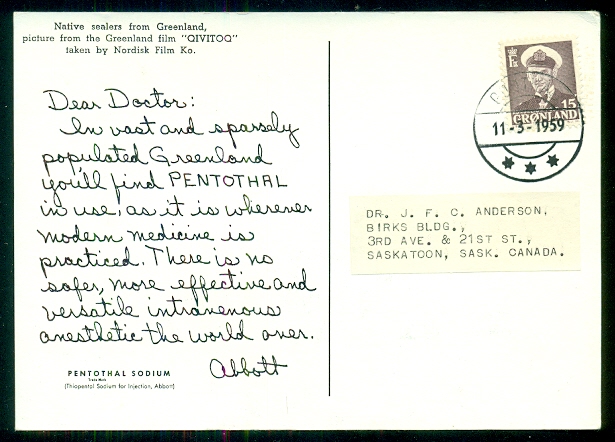 Native sealers from Greenland,
picture from the Greenland film "QIVITOQ"
taken by Nordisk Film Ko.
Dear Doctor:
In vast and sparsely
populated Greenland
you'll find PENTOTHAL
in use, as it is wherever
modern medicine is
practiced. There is no
safer, more effective and
versatile intravenous
anesthetic the world over.
Abbott
PENTOTHAL SODIUM
Trade Mark
(Thiopental Sodium for Injection, Abbott)
15
GRØNLAND
11-3-1959
DR. J. F. C. ANDERSON,
BIRKS BLDG.,
3RD AVE. & 21ST ST.,
SASKATOON, SASK. CANADA.